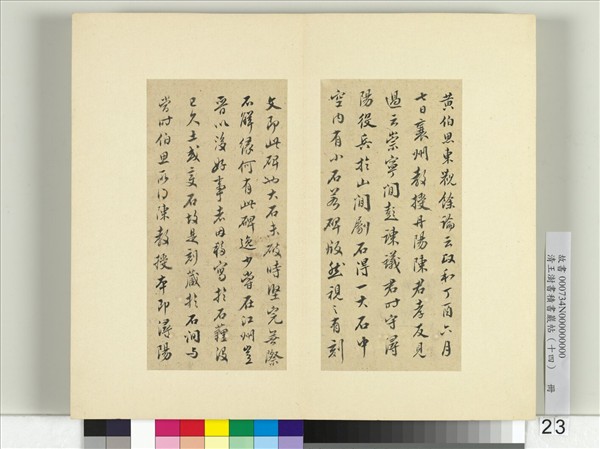 黃伯思東觀餘論云政和丁酉六月
七日襄州教授丹陽陳君孝友見
過云崇寧間彭諫議君時守潯
陽役兵於山澗劚石得一大石中
空內有小石若碑版然視之有刻
文即此碑也大石未破時堅完無際
不解緣何有此碑逸少嘗在江州豈
晉以後好事者因移寫於石薶沒
已久土或變石故是刻藏於石洞與
當時伯思所得陳教授本即潯陽
故書 000734N000000000
清王澍書積書巖帖(十四) 冊
23